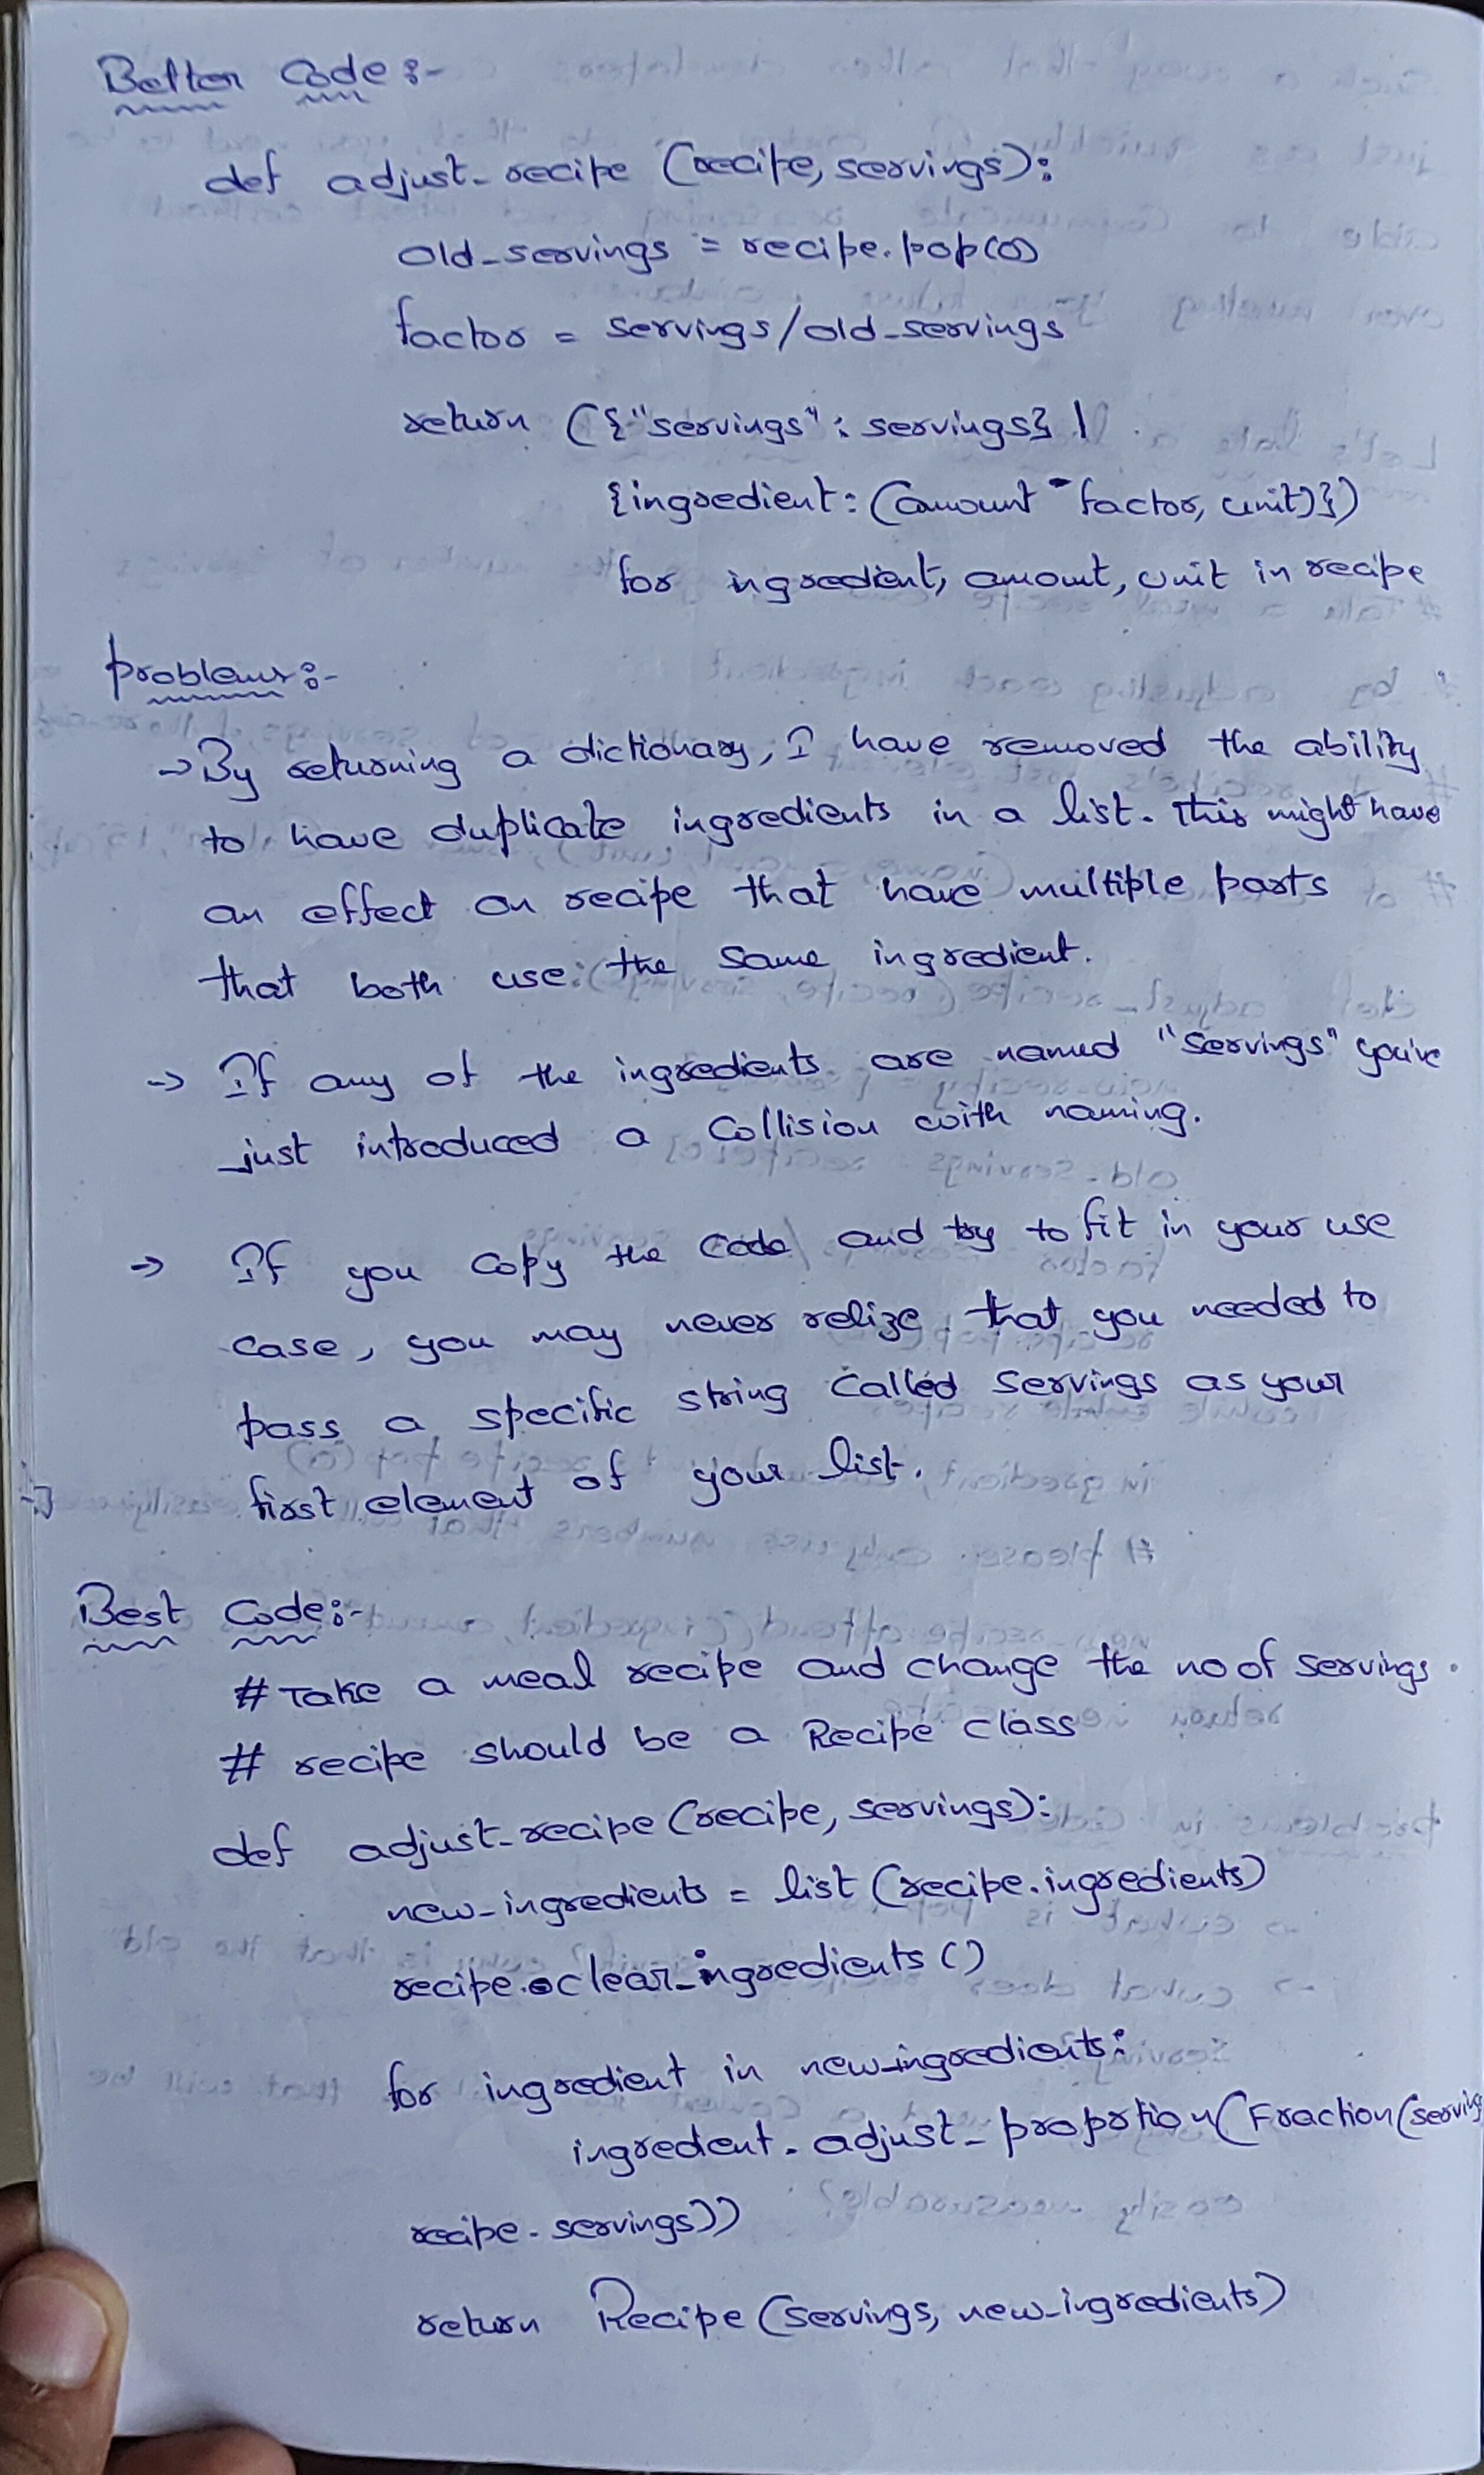 Better Code:-
def adjust_recipe (recipe, servings):
old_servings = recipe.pop(0)
factor = servings/old_servings
return ({"servings": servings} |
{ingredient: (amount - factor, unit)})
for ingredient, amount, unit in recipe
problems:-
→ By returning a dictionary, I have removed the ability
to have duplicate ingredients in a list. This might have
an effect on recipe that have multiple parts
that both use the same ingredient.
→ If any of the ingredients are named "servings" you've
just introduced a Collision with naming.
→ If you copy the code and try to fit in your use
case, you may never relize that you needed to
pass a specific string called servings as your
first element of your list.
Best Code:-
# Take a meal recipe and change the no of servings.
# recipe should be a Recipe class
def adjust_recipe (recipe, servings):
new_ingredients = list (recipe.ingredients)
recipe.clear_ingredients ()
for ingredient in new_ingredients:
ingredent. adjust_proportion(Fraction(servings
recipe. servings))
return Recipe (servings, new_ingredients)